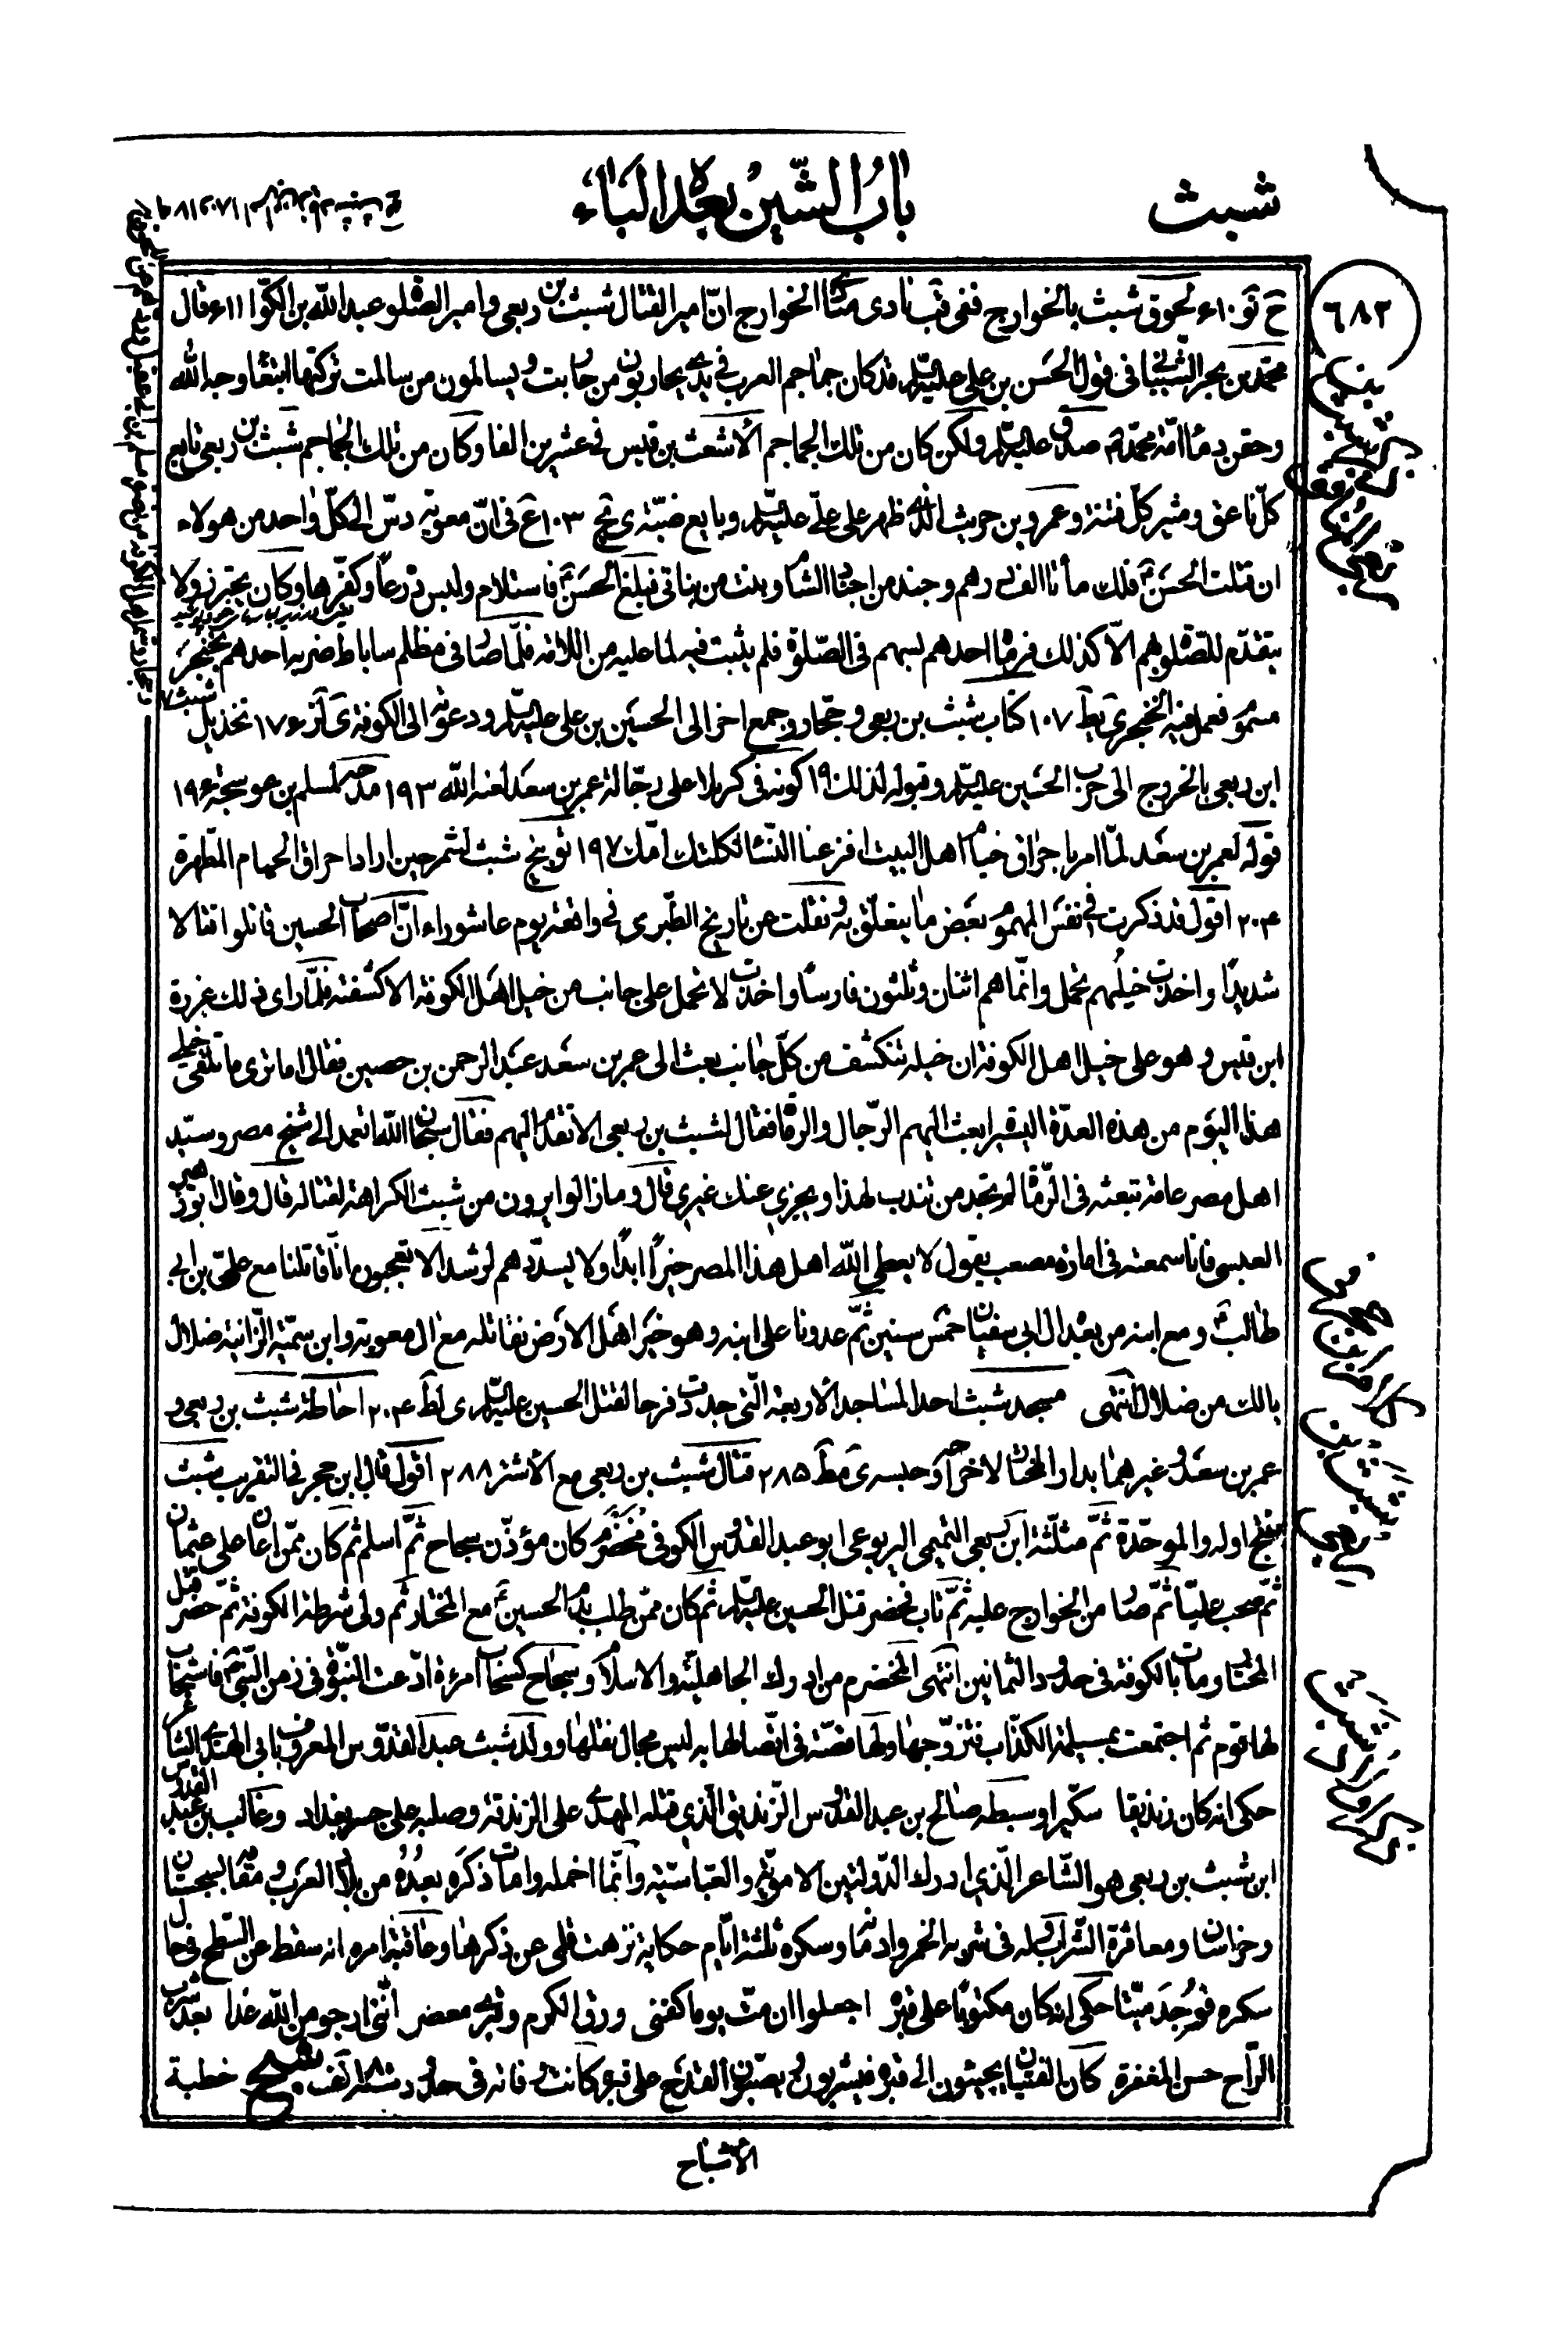 شبث
باب الشّين بعده الباء
٦٨٢
ح نو ٦١٠ لحوق شبث بالخوارج ففى قب نادى منادى الخوارج انّ امير القتال شبث بن ربعى وامير الصّلوة عبد الله بن الكوّا ٦١١ قال
محمّد بن بحر الشّيبانى فى قول الحسن بن على عليه السّلام قد كان جماجم العرب فى يدى يحاربون من حاربت ويسالمون من سالمت تركتها ابتغاء وجه الله
وحقن دماء امّة محمّد صدق عليه السّلام ولكن كان من تلك الجماجم الأشعث بن قيس فى عشرين الفا وكان من تلك الجماجم شبث بن ربعى تابع
كلّ ناعق ومثير كلّ فتنة وعمرو بن حريث الّذى ظهر على علىّ عليه السّلام وبايع ضبّة ى يج ١٠٣ ع فى انّ معوية دسّ الى كلّ واحد من هولاء
ان قتلت الحسن فلك مأتا الف درهم وجند من اجناد الشام وبنت من بناتى فبلغ الحسن فاستلام ولبس درعا وكفّرها وكان يحترز ولا
يتقدّم للصّلوة بهم الّا كذلك فرماه احدهم بسهم فى الصّلوة فلم يثبت فيه لما عليه من اللامة فلمّا صار فى مظلم ساباط ضربه احدهم بخنجر
مسموم فعمل فيه الخنجر ى يط ١٠٧ كتاب شبث بن ربعى وحجّار وجمع اخر الى الحسين بن على عليه السّلام ودعوته الى الكوفة ى لز ١٧٦ تخذيل شبث
ابن ربعى بالخروج الى حرب الحسين عليه السّلام وقبوله لذلك ١٩٠ كونه فى كربلا على رجّالة عمر بن سعد لعنه الله ١٩٣ مدحه لمسلم بن عوسجة ١٩٦
قوله لعمر بن سعد لمّا امر باحراق خيام اهل البيت افزعنا النّساء ثكلتك امّك ١٩٧ توبيخ شبث لشمر حين اراد احراق الخيام المطهّرة
٢٠٤ اقول قد ذكرت فى نفس المهموم بعض ما يتعلّق به ونقلت عن تاريخ الطّبرى فى واقعة يوم عاشوراء انّ اصحاب الحسين قاتلوا قتالا
شديدا واخذت خيلهم تحمل وانّما هم اثنان وثلثون فارسا واخذت لا تحمل على جانب من خيل اهل الكوفة الا كشفته فلمّا راى ذلك عزرة
ابن قيس وهو على خيل اهل الكوفة ان خيله تنكشف من كلّ جانب بعث الى عمر بن سعد عبد الرحمن بن حصين فقال اما ترى ما تلقى خيلى
هذا اليوم من هذه العدّة اليسيرة ابعث اليهم الرّجال والرماة فقال لشبث بن ربعى الا تقدم اليهم فقال سبحان الله اتعمد الى شيخ مصر وسيّد
اهل مصر عامة تبعثه فى الرّماة لم تجد من تندب لهذا ويجزى عنك غيرى قال وما زالوا يرون من شبث الكراهة لقتاله قال وقال ابو زهير
العبسى فانا سمعته فى امارة مصعب يقول لا يعطى الله اهل هذا المصر خيرا ابدا ولا يسدّدهم لرشد الا تعجبون انّا قاتلنا مع علىّ بن ابى
طالب ومع ابنه من بعد ال ابى سفيان خمس سنين ثمّ عدونا على ابنه وهو خير اهل الارض نقاتله مع ال معوية وابن سميّة الزّانية ضلال
يالك من ضلال انتهى مسجد شبث احد المساجد الأربعة الّتى جدّدت فرحا لقتل الحسين عليه السّلام ى لط ٢٠٤ احاطة شبث بن ربعى و
عمر بن سعد وغيرهما بدار المختار لاخراجه وحبسه ى مط ٢٨٥ قتال شبث بن ربعى مع الأشتر ٢٨٨ اقول قال ابن حجر فى التقريب شبث
بفتح اوله والموحّدة ثمّ مثلّثة ابن ربعى التميمى اليربوعى ابو عبد القدوس الكوفى مخضرم كان مؤذّن سجاح ثمّ اسلم ثم كان ممّن اعان على عثمان
ثمّ صحب عليّا ثمّ صار من الخوارج عليه ثمّ تاب فحضر قتل الحسين عليه السّلام ثم كان ممّن طلب بدم الحسين مع المختار ثم ولى شرطة الكوفة ثمّ حضر قتل
المختار ومات بالكوفة فى حدود الثمانين انتهى المخضرم من ادرك الجاهليّة والاسلام وسجاح كسحاب امرئة ادّعت النبوّة فى زمن النّبى فاستجاب
لها قوم ثم اجتمعت بمسيلمة الكذّاب فتزوّجها ولها قصّة فى اتّصالها به ليس مجال نقلها وولد شبث عبد القدّوس المعروف بابى الهندى الشاعر
حكى انه كان زنديقا سكّيرا وسبطه صالح بن عبد القدّوس الزّنديق الّذى قتله المهدى على الزندقة وصلبه على جسر بغداد وغالب بن عبد القدوس
ابن شبث بن ربعى هو الشّاعر الّذى ادرك الدّولتين الامويّة والعبّاسيّة وانّما اخمله وامات ذكره بعده من بلاد العرب ومقامه بسجستان
وخراسان ومعاقرة الشّراب وله فى شربه الخمر وادمانها وسكره ثلثة ايّام حكاية نزهت قلمى عن ذكرها وعاقبة امره انه سقط عن السّطح فى حال
سكره فوجد ميّتا حكى انه كان مكتوبا على قبره اجعلوا ان متّ يوما كفنى ورق الكرم وقبرى معصر انّنى ارجو من الله غدا بعد شرب
الرّاح حسن المغفرة كان الفتيان يجيئون الى قبره فيشربون ويصبّون القدح على قبره كانت وفاته فى حدود سنة ١٨٠ قف شبح خطبة
الأشباح